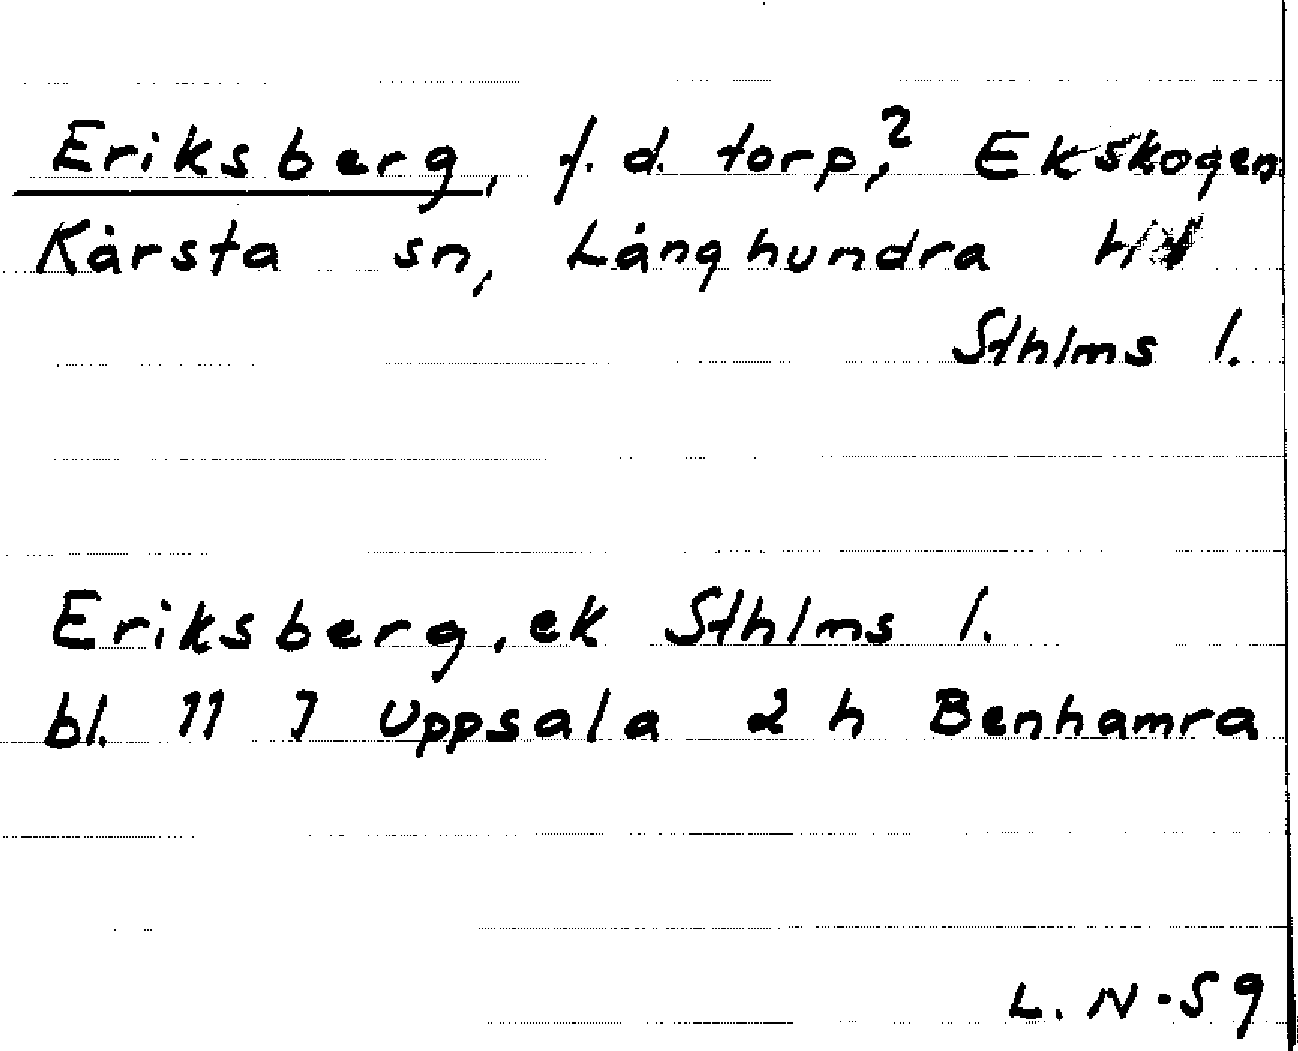 Eriksberg, f. d. torp,? Ekskogen
Kårsta sn, Långhundra
Sthlms l.
Eriksberg, ek Sthlms l.
bl. 11 I Uppsala 2 h Benhamra
L. N-59